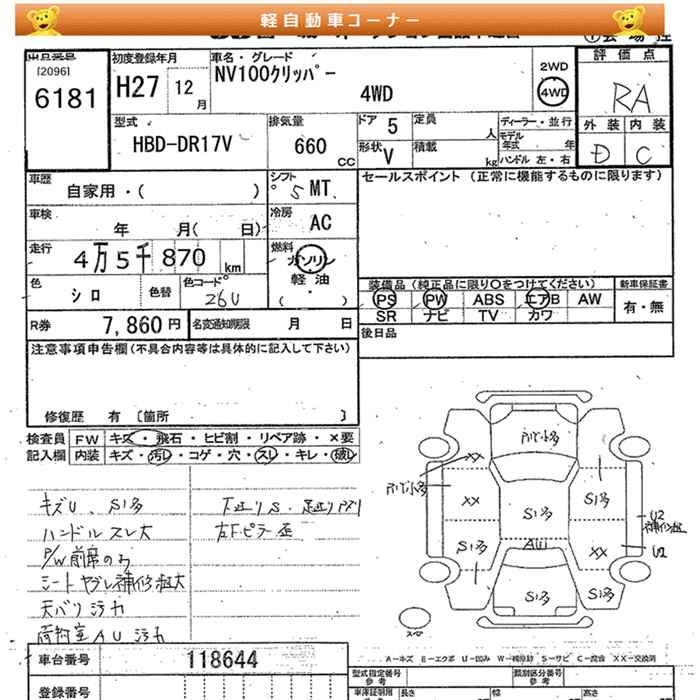 軽自動車コーナー
出品番号
[2096]
6181
初度登録年月
H27
12
月
車名・グレード
NV100クリッパー
4WD
2WD
4WD
評価点
RA
外装
内装
D
C
型式
HBD-DR17V
排気量
660
CC
ドア
5
定員
人
形状
V
積載
kg
ディーラー・並行
モデル
年式
年
ハンドル 左・右
車歴
自家用・( )
シフト
5 MT
冷房
AC
セールスポイント (正常に機能するものに限ります)
車検
年 月( 日)
走行
4万5千870
km
燃料
ガソリン
軽油
( ・ )
色
シロ
色替
色コード
26U
装備品(純正品に限り○をつけてください)
新車保証書
PS
PW
ABS
エアB
AW
有・無
SR
ナビ
TV
カワ
R券
7,860円
名変通知期限
月 日
後日品
注意事項申告欄(不具合内容等は具体的に記入して下さい)
修復歴 有 〔箇所 〕
検査員
記入欄
FW
キズ・飛石・ヒビ割・リペア跡・×要
内装
キズ・汚レ・コゲ・穴・スレ・キレ・破レ
キズU、S1多
ハンドルスレ大
P/W前席のみ
シートヤブレ補修粗大
天バリ汚れ
荷物室AU汚れ
下廻りS、足廻りサビ
左F.ピラー歪
S1多
S1多
S1多
S1多
S1多
AU1
XX
XX
XX
U2
補修粗
U1
車台番号
118644
登録番号
A-キズ E-エクボ U-凹み W-補修跡 S-サビ C-腐食 XX-交換済
型式指定番号
参考
類別区分番号
参考
長さ
幅
高さ